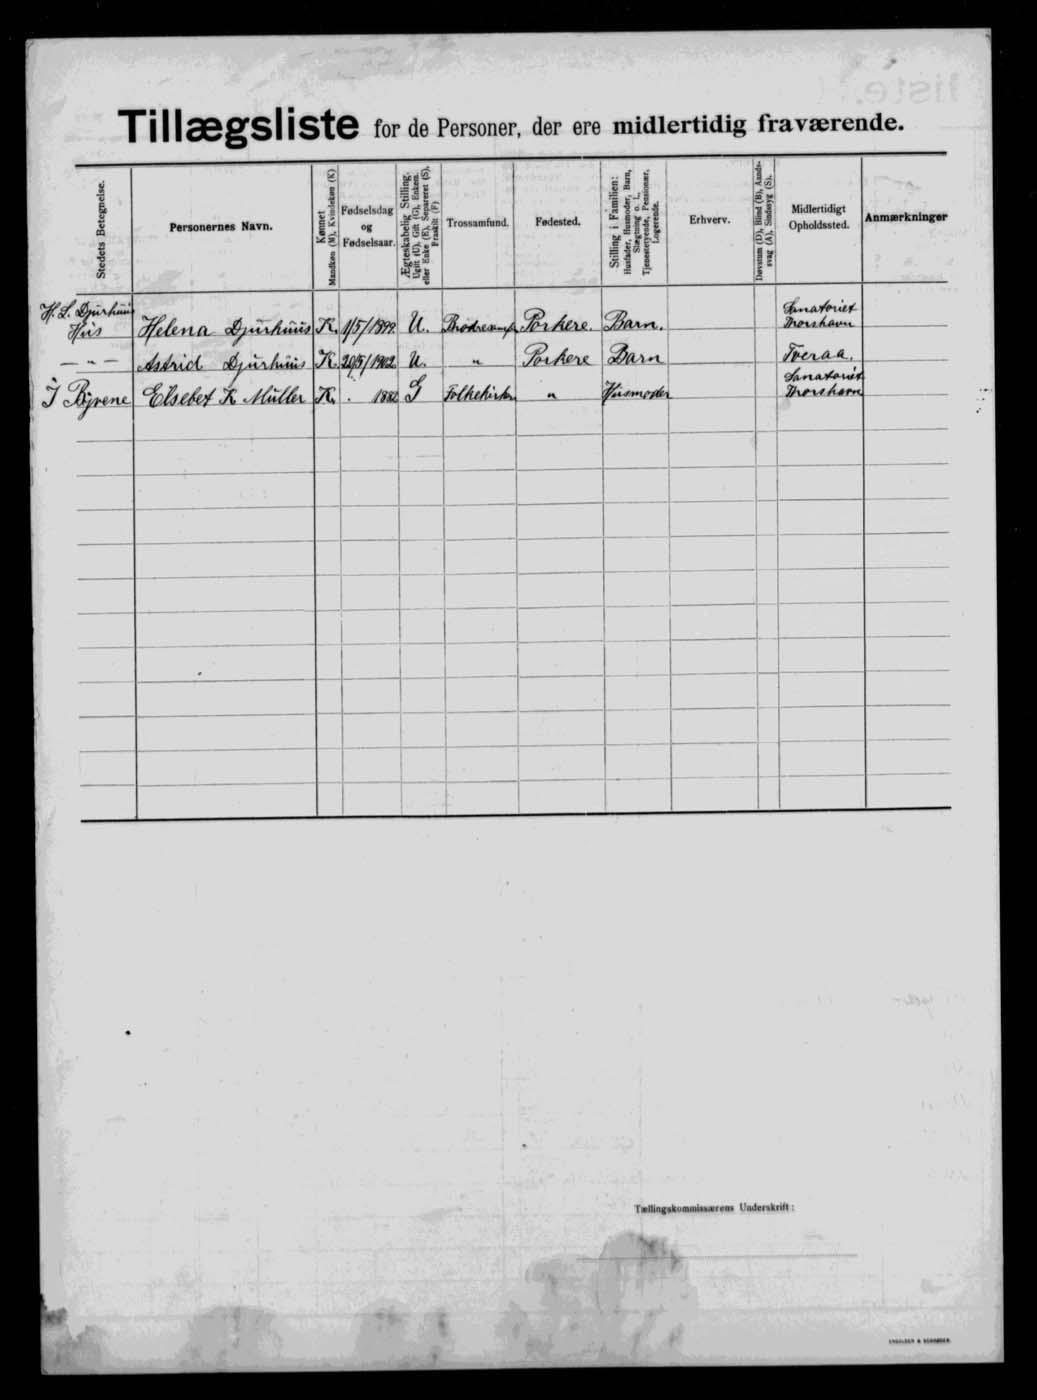 Tillægsliste for de Personer, der ere midlertidig fraværende.
Stedets Betegnelse.
Personernes Navn.
Kønnet
Mandkøn (M), Kvindekøn (K)
Fødselsdag
og
Fødselsaar.
Ægteskabelig Stilling.
Ugift (U), Gift (G), Enkem.
eller Enke (E), Separeret (S),
Fraskilt (F)
Trossamfund.
Fødested.
Stilling i Familien:
Husfader, Husmoder, Barn,
Slægtning o. l.,
Tjenestetyende, Pensionær,
Logerende.
Erhverv.
Døvstum (D), Blind (B), Aands-
svag (A), Sindssyg (S).
Midlertidigt
Opholdssted.
Anmærkninger
H. L. Djurhuus
Hus Helena Djurhuus K. 1/5/1899 U. Porkere. Barn. Sanatoriet Thorshavn
— " — Astrid Djurhuus K. 20/5/1902 U. " Porkere Barn Tveraa.
I Byrene Elsebet K Müller K. 1882 G Folkekirke " Husmoder Sanatoriet Thorshavn
Tællingskommissærens Underskrift: